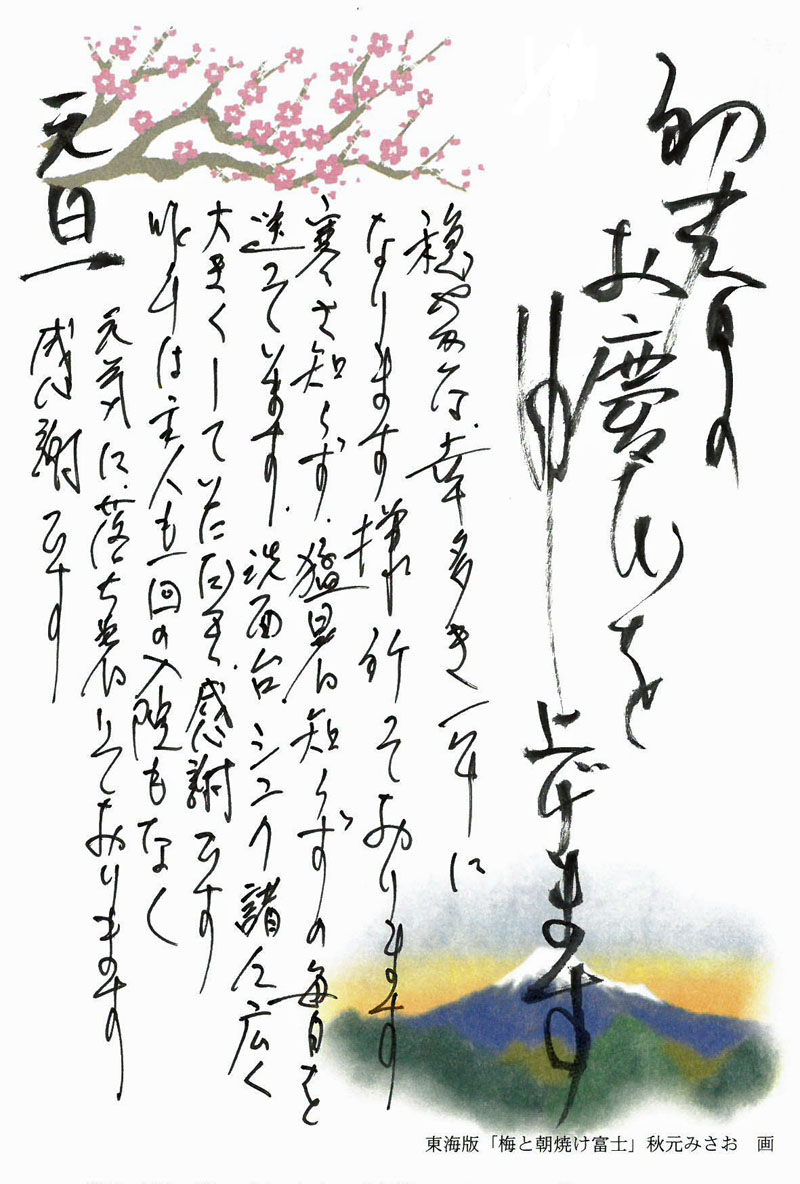 初春の
お慶びを
申し上げます
穏やかな、幸多き一年に
なります様祈っております
寒さ知らず、猛暑知らずの毎日を
送っています。洗面台、シンク諸々広く
大きくしていただき、感謝です
昨年は主人も一回の入院もなく
元気に落ち着いております
感謝です
元旦
東海版「梅と朝焼け富士」秋元みさお 画